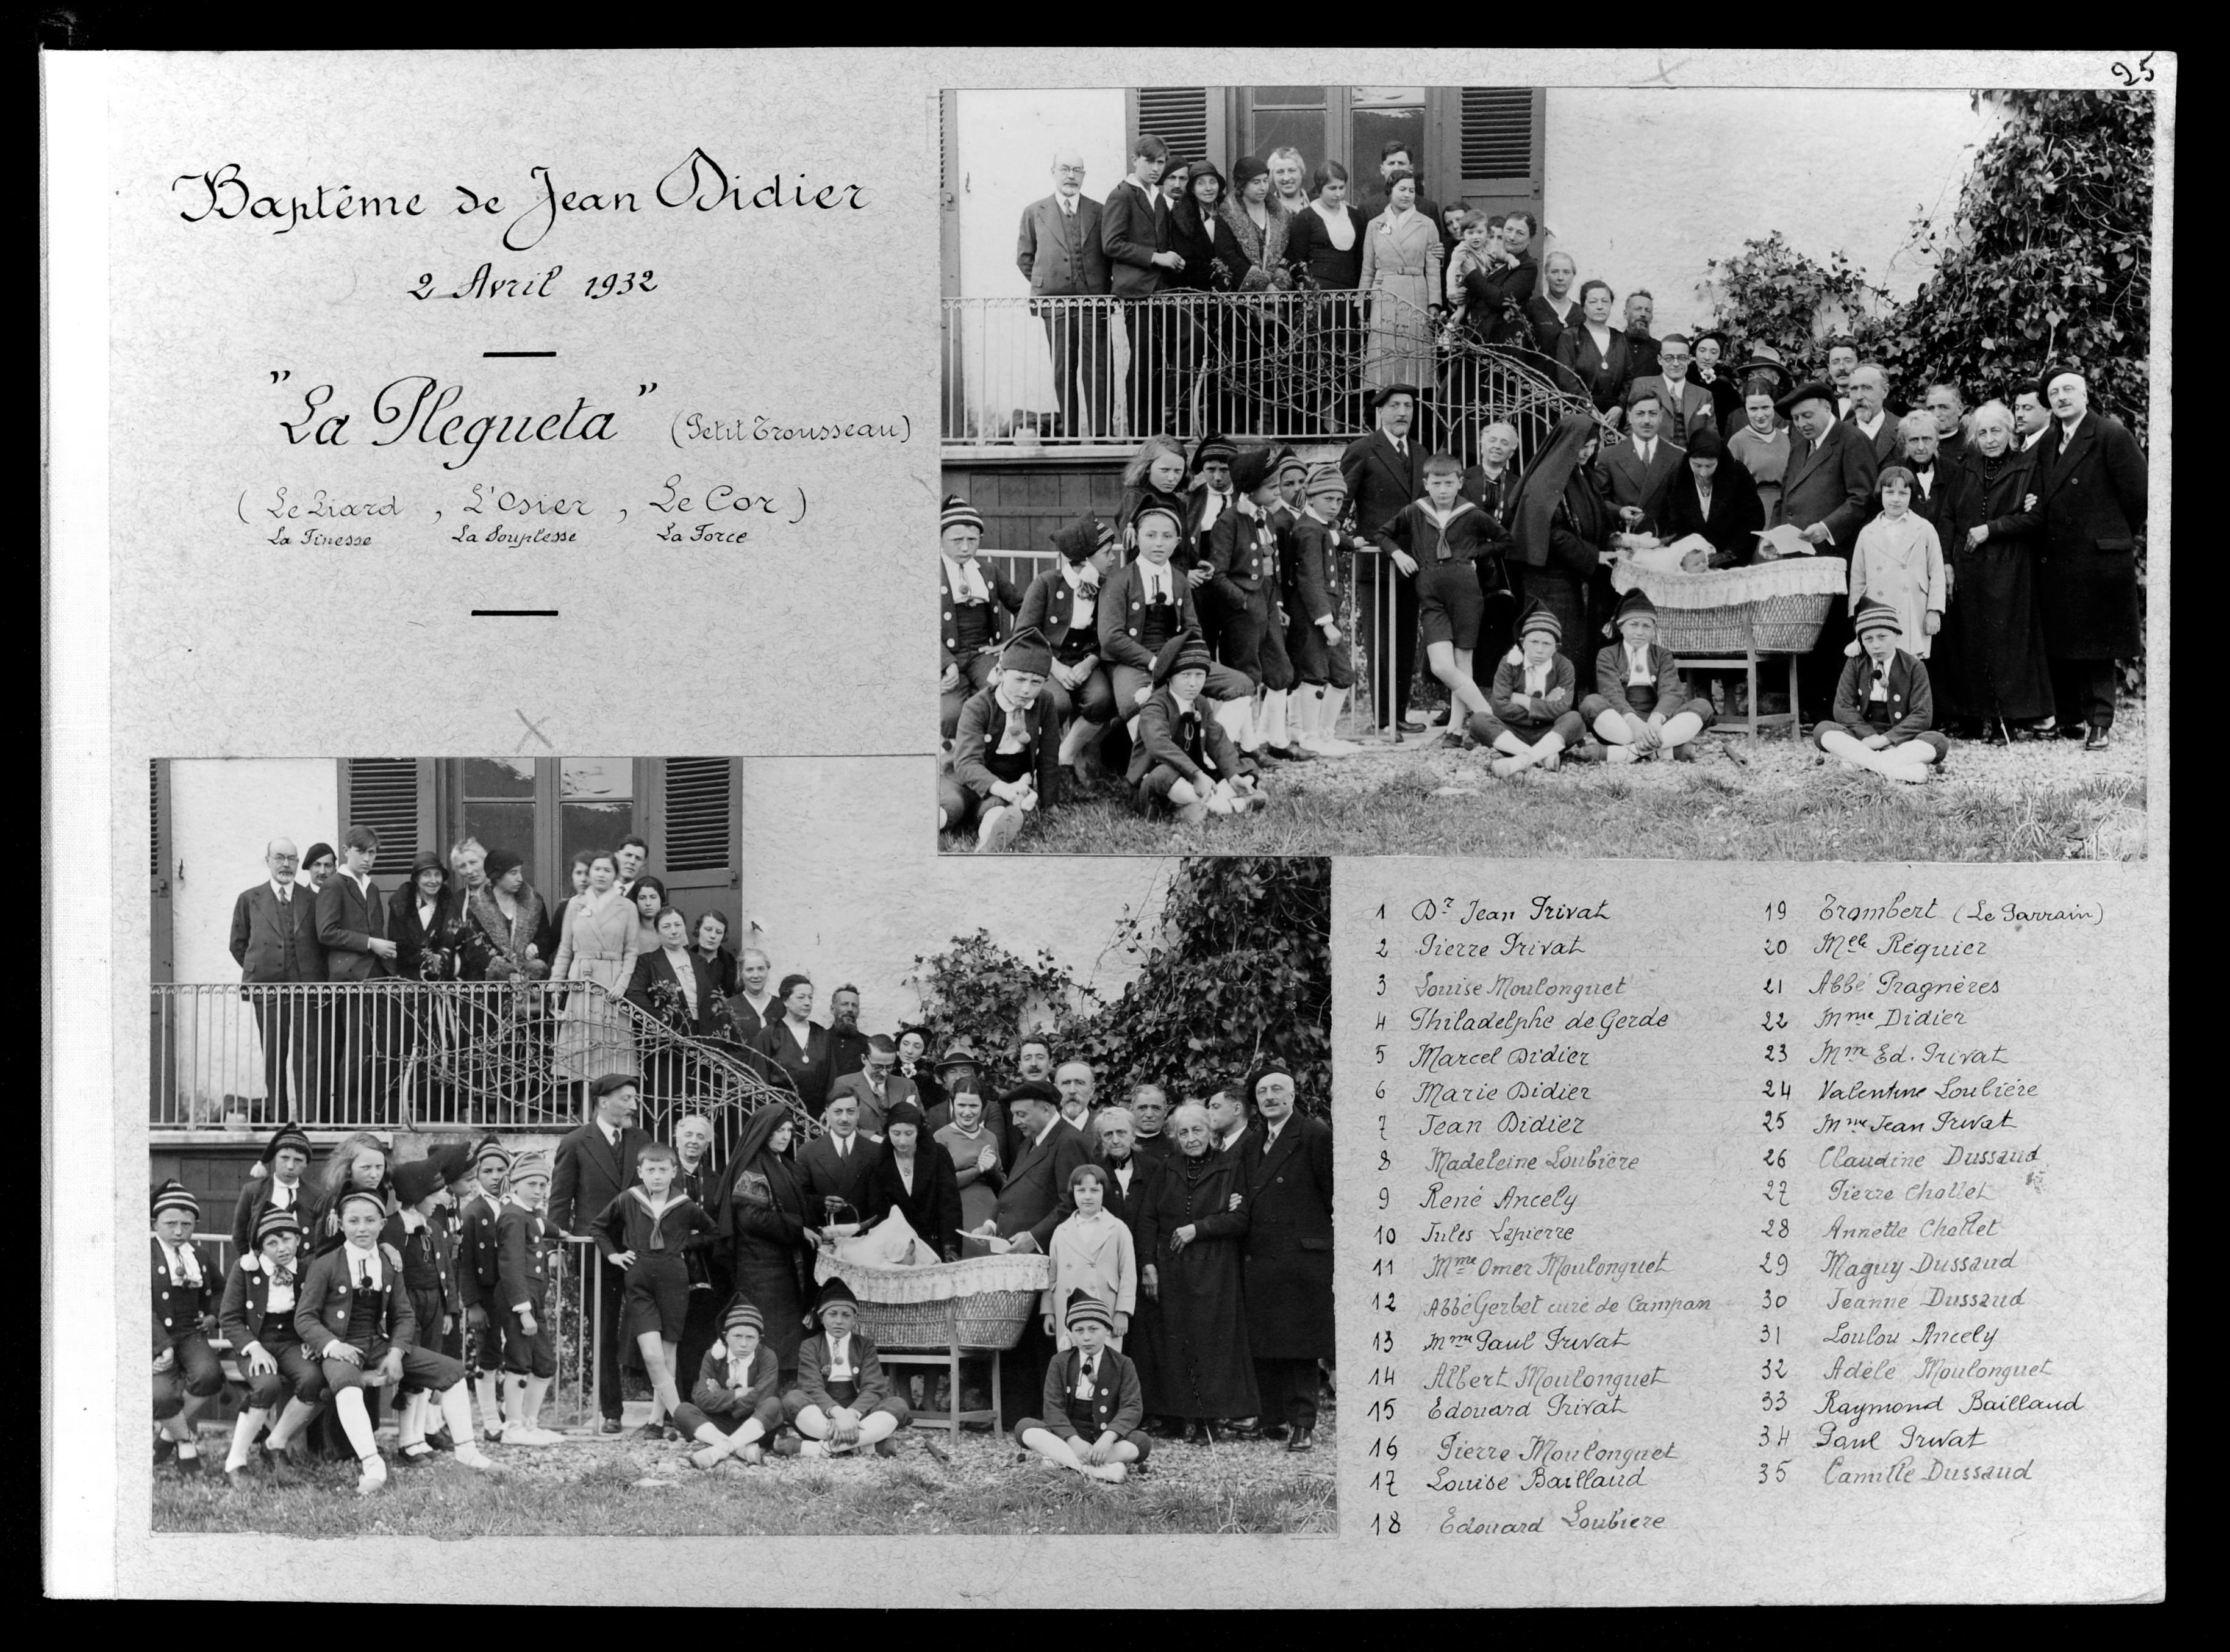 25
Baptême de Jean Didier
2 Avril 1932
"La Plegueta" (Petit Trousseau)
(Le Liard, L'Osier, Le Cor)
La Finesse La Souplesse La Force
1 Dr Jean Privat
2 Pierre Privat
3 Louise Moulonguet
4 Philadelphe de Gerde
5 Marcel Didier
6 Marie Didier
7 Jean Didier
8 Madeleine Loubière
9 René Ancely
10 Jules Lapierre
11 Mme Omer Moulonguet
12 Abbé Gerbet curé de Campan
13 Mme Paul Privat
14 Albert Moulonguet
15 Edouard Privat
16 Pierre Moulonguet
17 Louise Baillaud
18 Edouard Loubiere
19 Trombert (Le Parrain)
20 Melle Réquier
21 Abbé Pragnères
22 Mme Didier
23 Mm Ed. Privat
24 Valentine Loubière
25 Mme Jean Privat
26 Claudine Dussaud
27 Pierre Chollet
28 Annette Chollet
29 Maguy Dussaud
30 Jeanne Dussaud
31 Loulou Ancely
32 Adèle Moulonguet
33 Raymond Baillaud
34 Paul Privat
35 Camille Dussaud